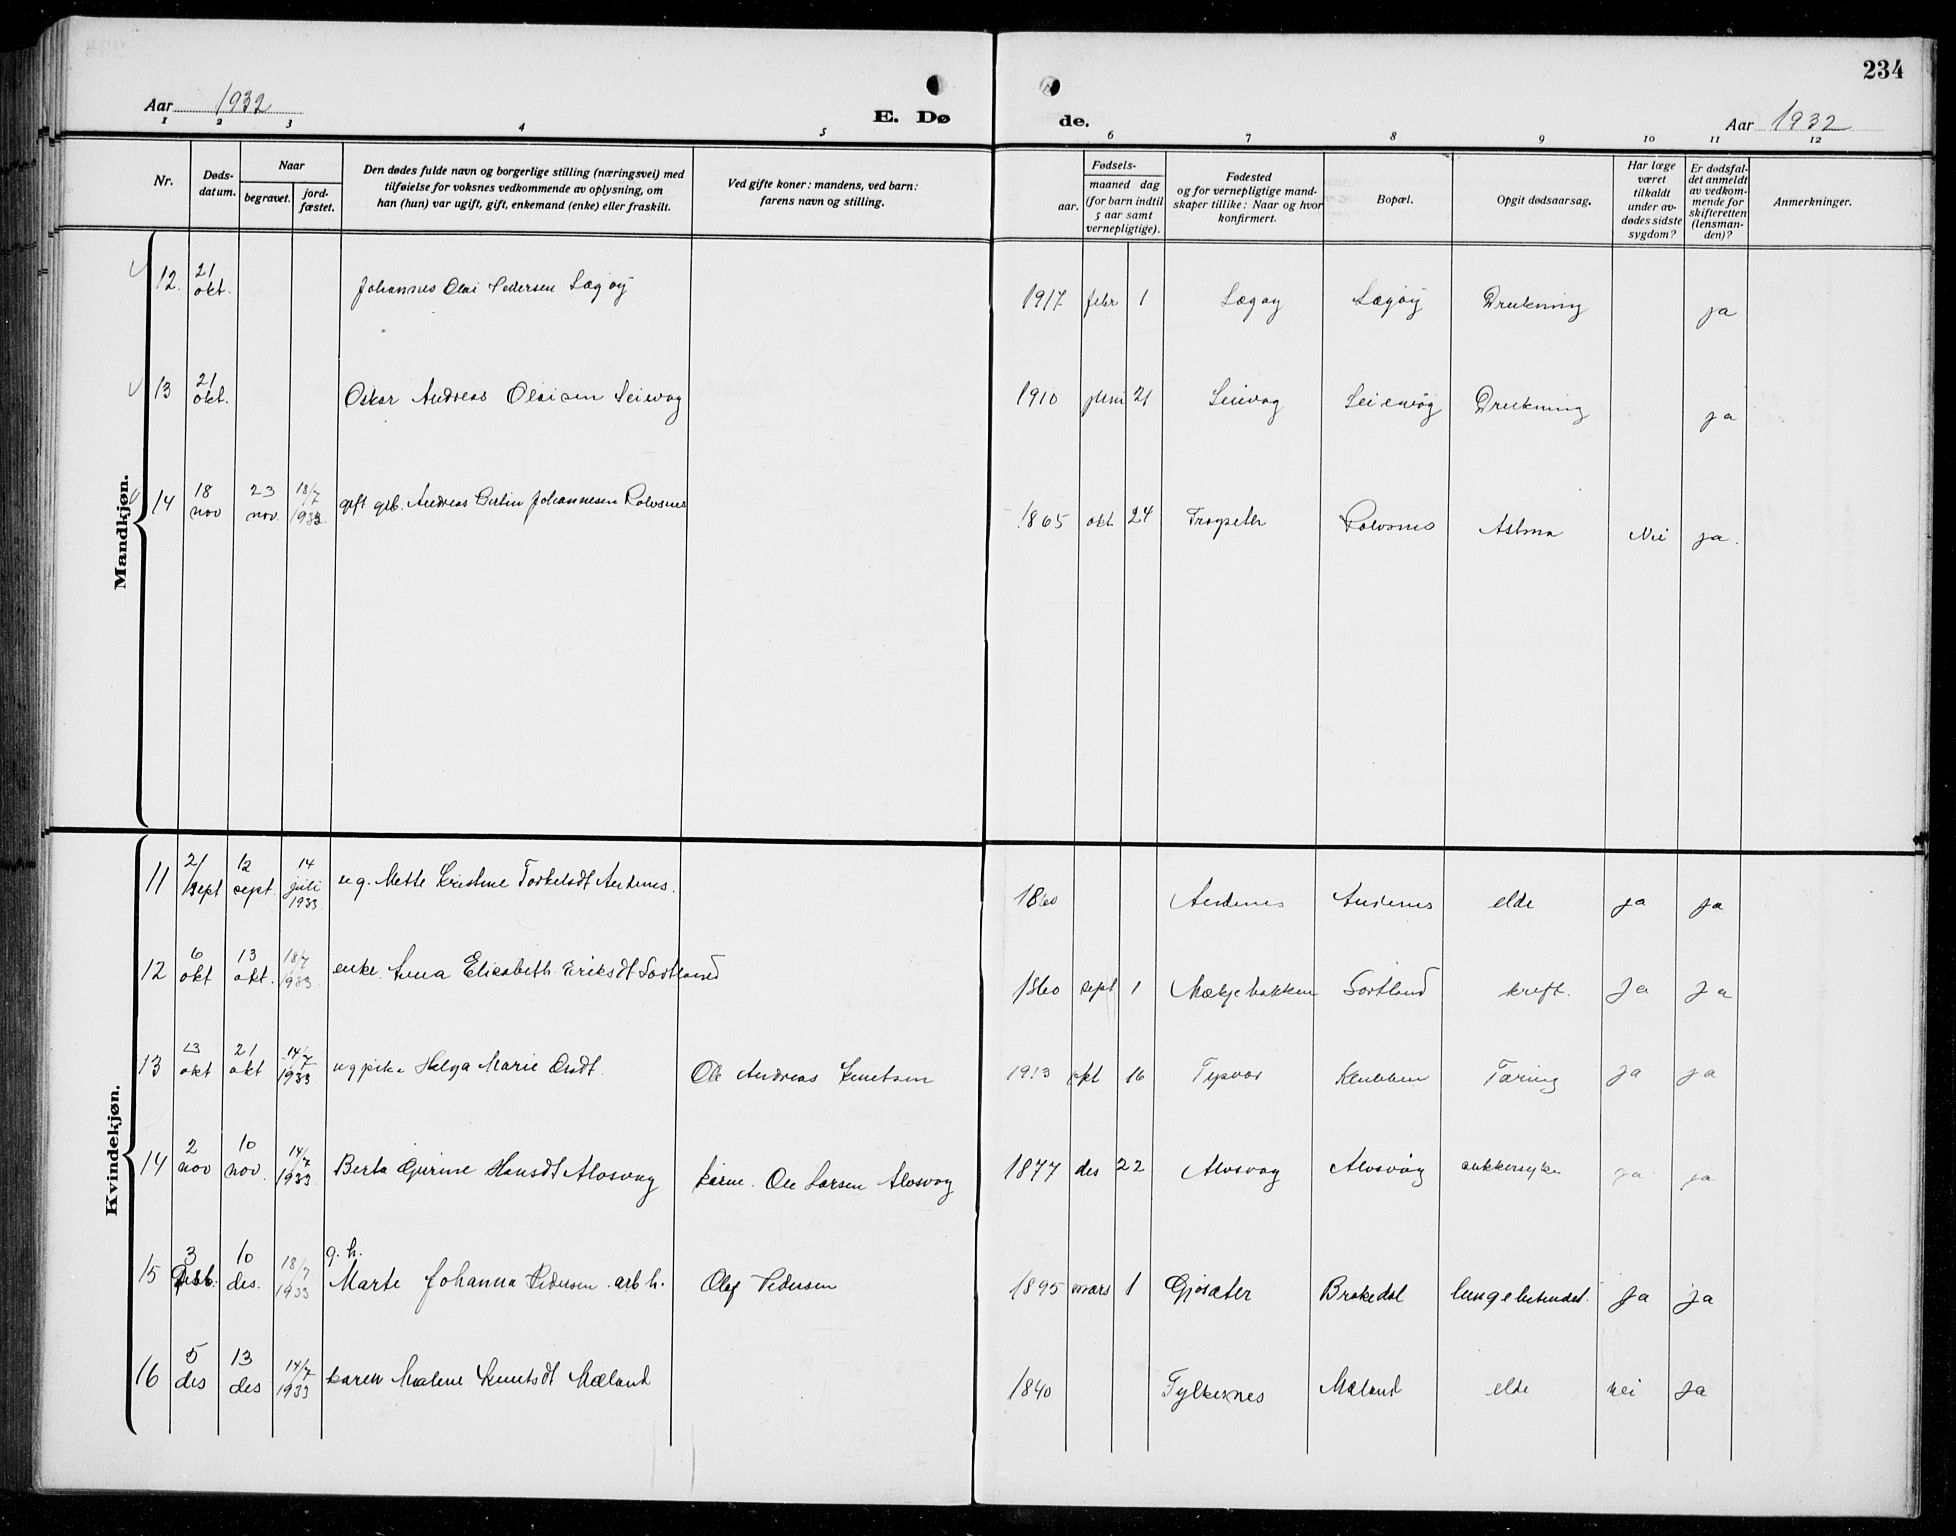 234
Aar 1932
E. Dø
de.
Aar 1932
1 2 3 4 5 6 7 8 9 10 11 12
Nr.
Døds-
datum.
Naar
begravet.
jord-
fæstet.
Den dødes fulde navn og borgerlige stilling (næringsvei) med
tilføielse for voksnes vedkommende av oplysning, om
han (hun) var ugift, gift, enkemand (enke) eller fraskilt.
Ved gifte koner: mandens, ved barn:
farens navn og stilling.
Fødsels-
aar.
maaned dag
(for barn indtil
5 aar samt
vernepligtige).
Fødested
og for vernepligtige mand-
skaper tillike: Naar og hvor
konfirmert.
Bopæl.
Opgit dødsaarsag.
Har læge
været
tilkaldt
under av-
dødes sidste
sygdom?
Er dødsfal-
det anmeldt
av vedkom-
mende for
skifteretten
(lensman-
den)?
Anmerkninger.
Mandkjøn.
12. 21 okt. Johannes Olai Pedersen Lægøy 1917 febr 1 Lægøy Lægøy Drukning ja
13 21 okt. Oskar Andreas Olaisen Seievåg 1910 juni 21 Seievåg Drukning ja
14 18 nov 23 nov. 18/7 1933. gift grb. Andreas Johannesen Rolvsnes 1865 okt. 24 Rolvsnes Astma Nei ja.
Kvindekjøn.
11 sept 12 sept. 14 juli 1933 ug. Mette Kristine Torkelsdt 1860 elde ja ja
12 6 okt 13 okt. 18/7 1933 enke. Anna Elisabeth Eriksdt Sortland 1860 sept 1 Mækjebakken Sortland kreft. Ja Ja
13 13 okt 21 okt 14/7 1933 ug pike Helga Marie Olsdt. Ole Andreas Knutsen 1913 okt 16 Tysvær Klubben Tæring ja ja
14 2 nov 10 nov. 14/7 1933 Berta Gurine Hansdt Alosvåg kone. Ole Larsen Alosvåg 1877 des 22 Alvsvåg Alvsvåg sukkersyke ja ja
15 3 Desb. 10 des. 18/7 1933 g. h. Marte Johanna Pedersen arb h. Olaf Pedersen 1895 mars 1 Gjøsæter Brakedal lungebetendel. Ja ja
16 5 des 13 des 14/7 1933 Karen Malene Knutsdt Mæland 1840 Fylkesnes Mæland elde nei ja